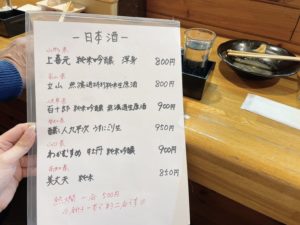 —日本酒—
山形県
上喜元 純米吟醸 渾身 800円
富山県
立山 無濾過特別純米生原酒 800円
岐阜県
百十郎 純米吟醸 無濾過生原酒 900円
愛知県
醸し人九平次 うすにごり生 950円
山口県
わかむすめ 牡丹 純米吟醸 900円
高知県
美丈夫 純米 850円
熱燗 一合 500円